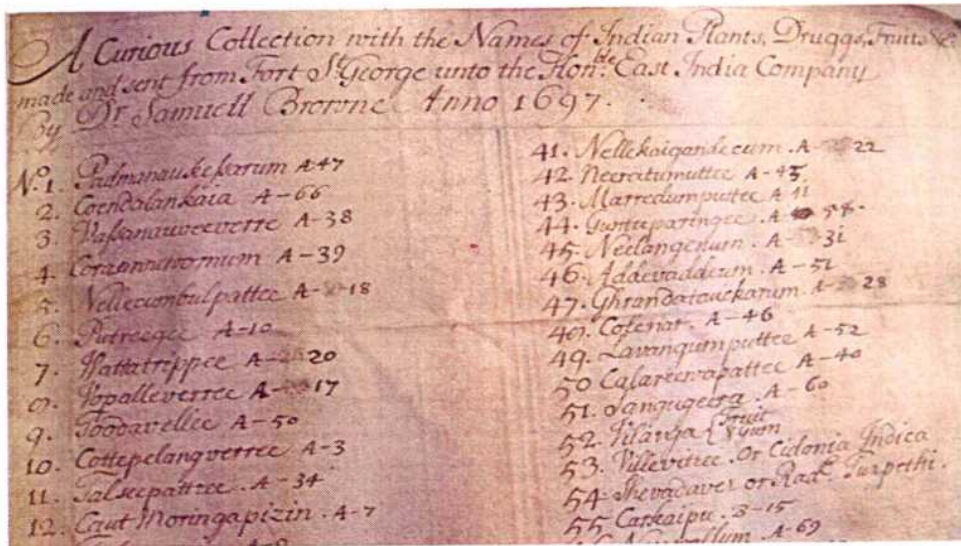 A Curious Collection with the Names of Indian Plants, Druggs, Fruits &c.
made and sent from Fort St. George unto the Honble. East India Company
By Dr Samuell Browne Anno 1697.
No. 1. Padmanauskessarum A-47
2. Coendalankaia A-66
3. Vassanauveeverre A-38
4. A-39
5. Nellecumbulpattee A-18
6. Putreegee A-10
7. Wattatrippee A-20
8. Popalleverree A-17
9. Toodavellee A-50
10. Cottepelangverree A-3
11. Talseepattree. A-34
12. Caut Moringapizin. A-7
41. Nellekaigandecum. A-22
42. Neeratumuttee A-45.
43. Marredumputtee A-11
44. Gunteparingee. A-58.
45. Neelangenum. A-31
46. Addevaddeum. A-51
47. Ghrandatavekarum. A-28
48. Cofenar. A-46
49. Lavangumputtee A-52
50 Calareewapattee A-40
51. Sangugeira. A-60
52. Vilanga { Fruit
53. Villevitree. Or Cidonia Indica
54 Shevadaver or Radx. Turpethi.
55 Carkaipu. 3-15
A-69